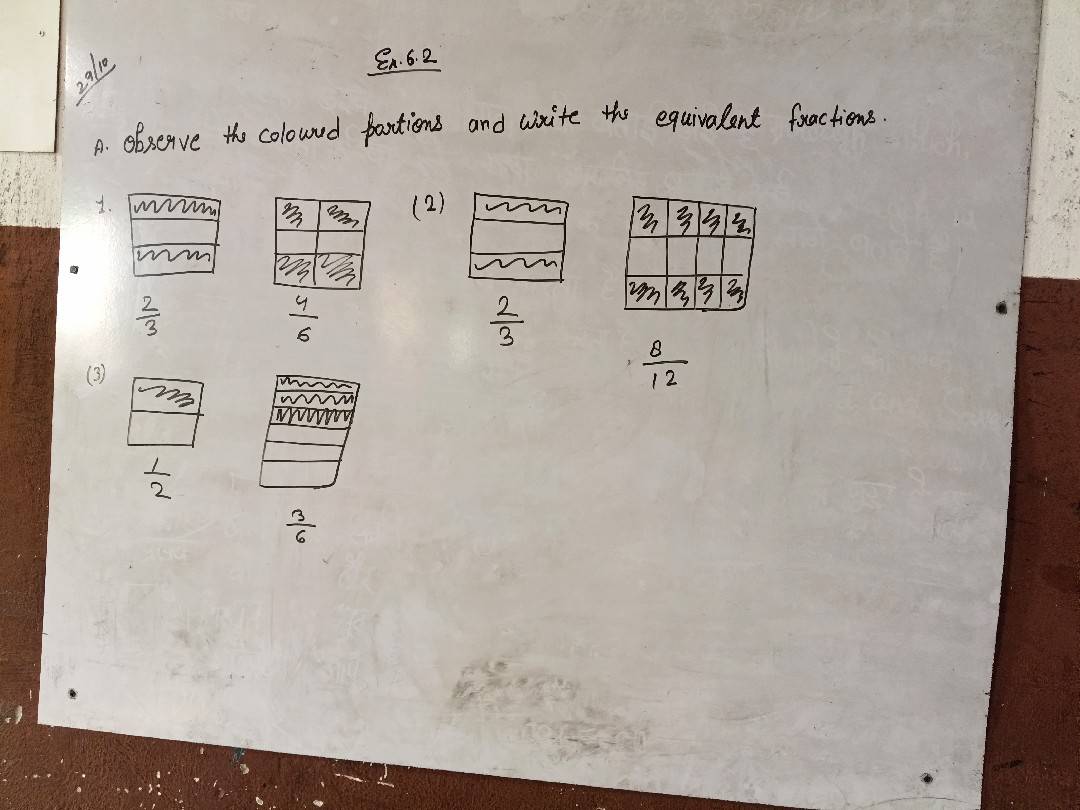 29/10
Ex. 6.2
A. Observe the coloured portions and write the equivalent fractions.
1. (2)
2/3 4/6 2/3 8/12
(3)
1/2 3/6